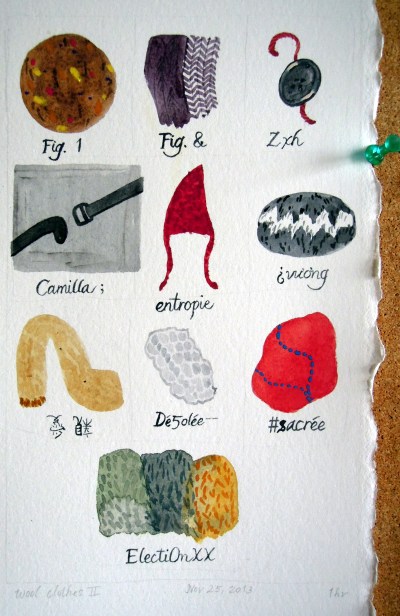 Fig. 1
Fig. &
Zxh
Camilla ;
entropie
¿vıớng
Dé5olée--
#sacrée
ElectiOnXX
wool clothes II
Nov 25, 2013
1hr